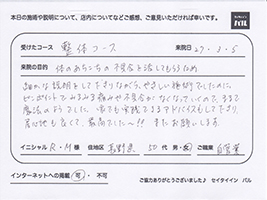 本日の施術や説明について、店内についてなどご感想、ご意見いただければ幸いです。
バル
受けたコース 整体コース 来院日 27・3・5
来院の目的 体のあちこちの不具合を治してもらうため
細かな説明をして下さりながら、やさしい施術でしたのに
ピンポイントでみるみる痛みや不具合がなくなっていので、まるで
魔法のようでした。家でも実践できるアドバイスもして下さり、
居心地も良くて、最高でした〜!! またお願いします。
イニシャル R・M 様 住地区 長野県 50 代 男・女 ご職業 自営業
インターネットへの掲載 可 ・ 不可
ご協力ありがとうございました♪ セイタイイン バル